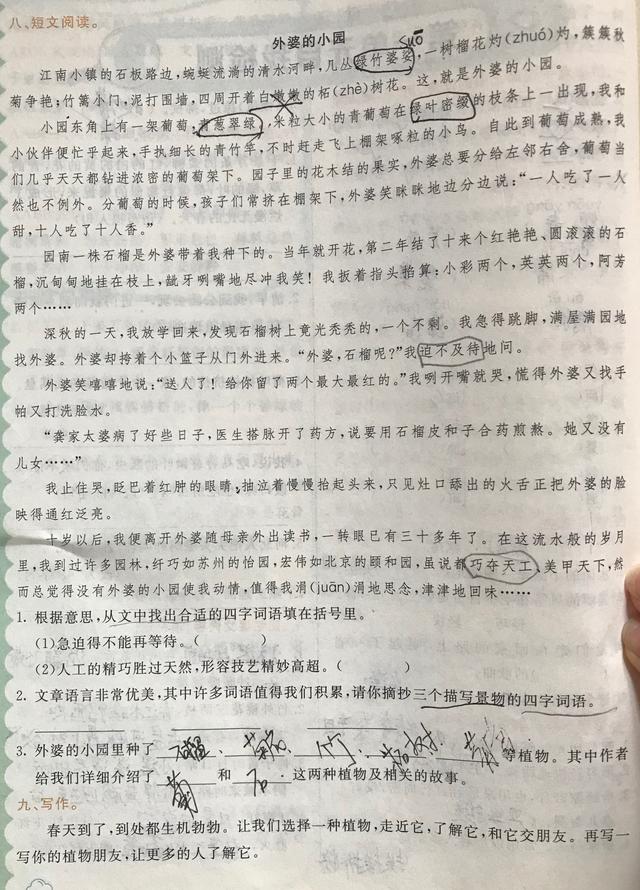 八、短文阅读。
外婆的小园
suō
江南小镇的石板路边,蜿蜒流淌的清水河畔,几丛绿竹婆娑,一树榴花灼(zhuó)灼,簇簇秋
菊争艳;竹篱小门,泥打围墙,四周开着白嫩嫩的柘(zhè)树花。这,就是外婆的小园。
小园东角上有一架葡萄,青葱翠绿,米粒大小的青葡萄在绿叶密缀的枝条上一出现,我和
小伙伴便忙乎起来,手执细长的青竹竿,不时赶走飞上棚架啄粒的小鸟。自此到葡萄成熟,我
们几乎天天都钻进浓密的葡萄架下。园子里的花木结的果实,外婆总要分给左邻右舍,葡萄当
然也不例外。分葡萄的时候,孩子们常挤在棚架下,外婆笑眯眯地边分边说:“一人吃了一人
甜,十人吃了十人香。”
园南一株石榴是外婆带着我种下的。当年就开花,第二年结了十来个红艳艳、圆滚滚的石
榴,沉甸甸地挂在枝上,龇牙咧嘴地尽冲我笑!我扳着指头掐算:小彩两个,英英两个,阿芳
两个……
深秋的一天,我放学回来,发现石榴树上竟光秃秃的,一个不剩。我急得跳脚,满屋满园地
找外婆。外婆却挎着个小篮子从门外进来。“外婆,石榴呢?”我迫不及待地问。
外婆笑嘻嘻地说:“送人了!给你留了两个最大最红的。”我咧开嘴就哭,慌得外婆又找手
帕又打洗脸水。
“龚家太婆病了好些日子,医生搭脉开了药方,说要用石榴皮和子合药煎熬。她又没有
儿女……”
我止住哭,眨巴着红肿的眼睛,抽泣着慢慢抬起头来,只见灶口舔出的火舌正把外婆的脸
映得通红泛亮。
十岁以后,我便离开外婆随母亲外出读书,一转眼已有三十多年了。在这流水般的岁月
里,我到过许多园林,纤巧如苏州的怡园,宏伟如北京的颐和园,虽说都巧夺天工,美甲天下,然
而总觉得没有外婆的小园使我动情,值得我涓(juān)涓地思念,津津地回味……
1. 根据意思,从文中找出合适的四字词语填在括号里。
(1)急迫得不能再等待。( )
(2)人工的精巧胜过天然,形容技艺精妙高超。( )
2. 文章语言非常优美,其中许多词语值得我们积累,请你摘抄三个描写景物的四字词语。
3. 外婆的小园里种了 石榴、 、竹、 等植物。其中作者
给我们详细介绍了 和 这两种植物及相关的故事。
九、写作。
春天到了,到处都生机勃勃。让我们选择一种植物,走近它,了解它,和它交朋友。再写一
写你的植物朋友,让更多的人了解它。